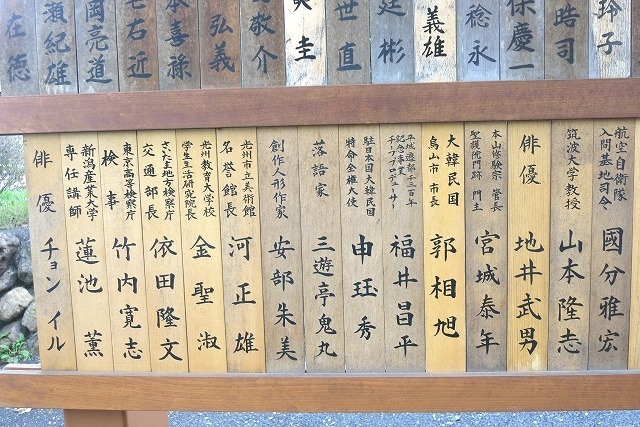 玲子
皓司
保慶一
稔永
義雄
廷彬
世直
美圭
敬介
弘義
本喜禄
七右近
岡亮道
瀬紀雄
在徳
航空自衛隊
入間基地司令
國分雅宏
筑波大学教授
山本隆志
俳優
地井武男
本山修験宗 管長
聖護院門跡 門主
宮城泰年
大韓民国
烏山市 市長
郭相旭
平城遷都千三百年
記念事業
チーフプロデューサー
福井昌平
駐日本国大韓民国
特命全権大使
申珏秀
落語家
三遊亭鬼丸
創作人形作家
安部朱美
光州市立美術館
名誉館長
河正雄
光州教育大学校
学生生活研究院長
金聖淑
さいたま地方検察庁
交通部長
依田隆文
東京高等検察庁
検事
竹内寛志
新潟産業大学
専任講師
蓮池薫
俳優
チョンイル